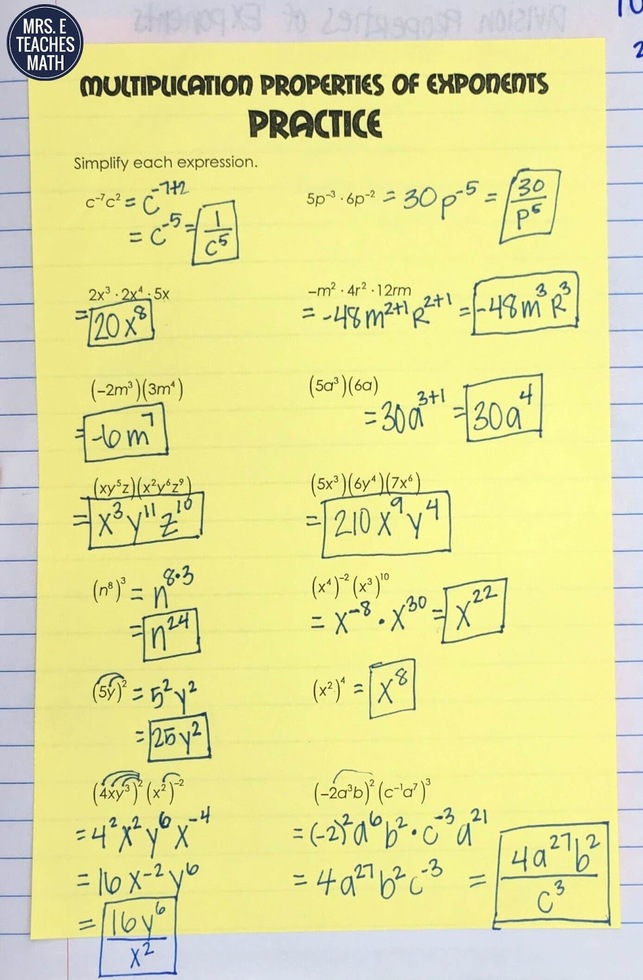 MRS. E
TEACHES
MATH
DIVISION PROPERTIES OF EXPONENTS
MULTIPLICATION PROPERTIES OF EXPONENTS
PRACTICE
Simplify each expression.
c⁻⁷c² = c⁻⁷⁺²
= c⁻⁵ = 1/c⁵
5p⁻³ · 6p⁻² = 30p⁻⁵ = 30/p⁵
2x³ · 2x⁴ · 5x
= 20x⁸
-m² · 4r² · 12rm
= -48m²⁺¹R²⁺¹ = -48m³R³
(-2m³)(3m⁴)
= -6m⁷
(5a³)(6a)
= 30a³⁺¹ = 30a⁴
(xy⁵z)(x²y⁶z⁹)
= x³y¹¹z¹⁰
(5x³)(6y⁴)(7x⁶)
= 210x⁹y⁴
(n⁸)³ = n⁸·³
= n²⁴
(x⁴)⁻²(x³)¹⁰
= x⁻⁸ · x³⁰ = x²²
(5y)² = 5²y²
= 25y²
(x²)⁴ = x⁸
(4xy³)²(x²)⁻²
= 4²x²y⁶x⁻⁴
= 16x⁻²y⁶
= 16y⁶/x²
(-2a³b)²(c⁻¹a⁷)³
= (-2)²a⁶b² · c⁻³a²¹
= 4a²⁷b²c⁻³ = 4a²⁷b²/c³